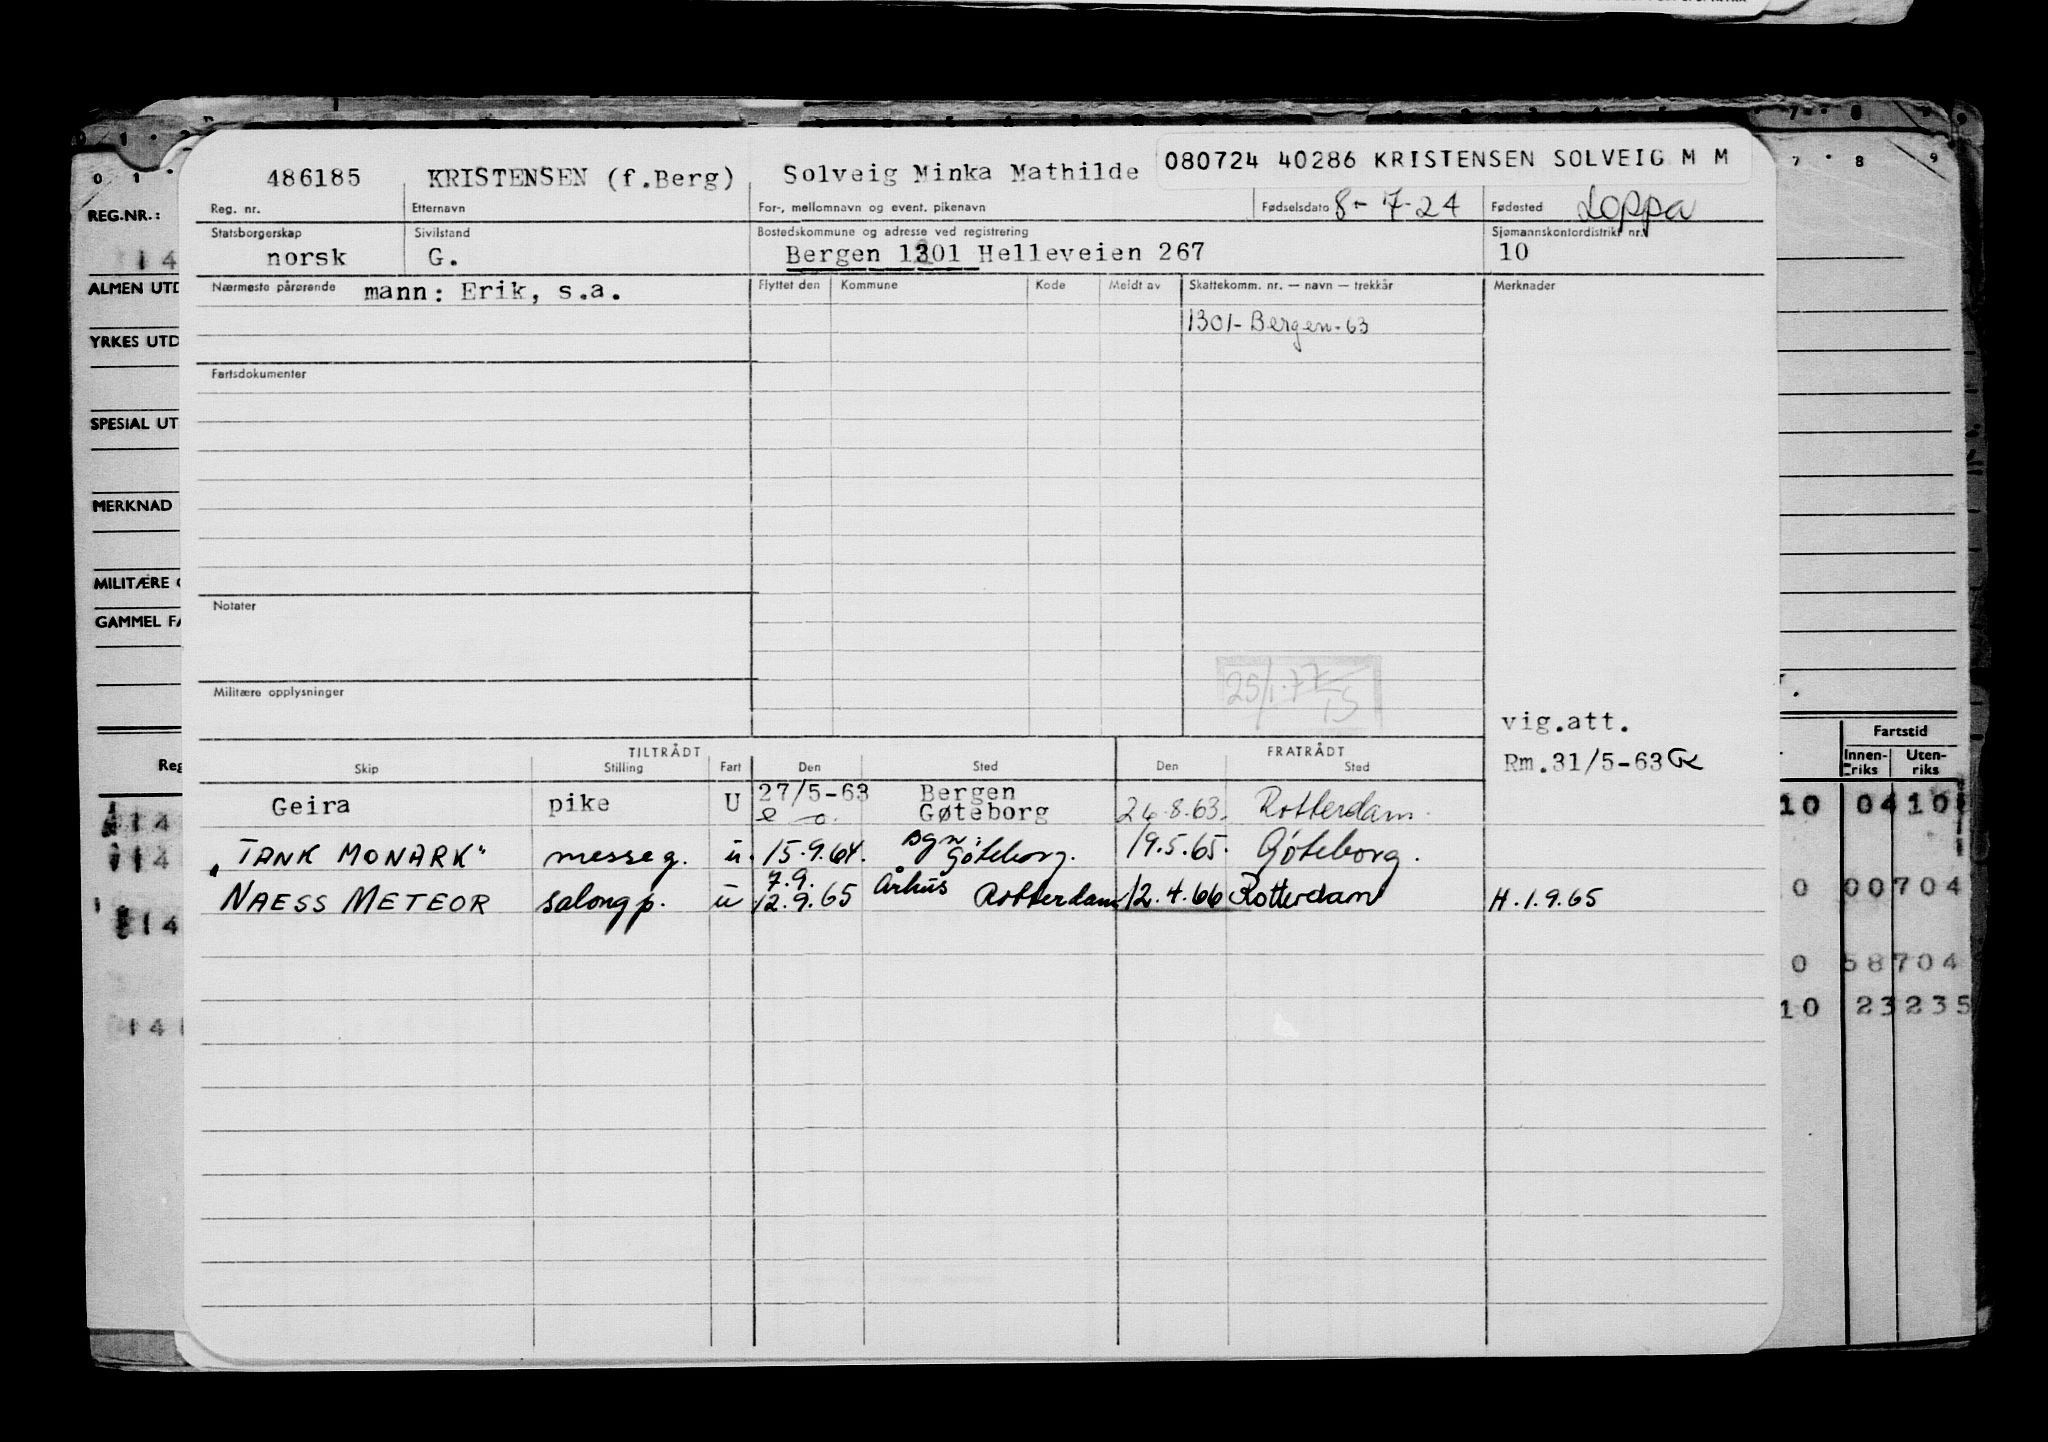 486185 KRISTENSEN (f.Berg) Solveig Minka Mathilde 080724 40286 KRISTENSEN SOLVEIG M M
Reg. nr. Etternavn For-, mellomnavn og event. pikenavn Fødselsdato 8-7-24 Fødested Loppa
Statsborgerskap Sivilstand Bostedskommune og adresse ved registrering Sjømannskontordistrikt nr.
norsk G. Bergen 1301 Helleveien 267 10
Nærmeste pårørende mann: Erik, s.a. Flyttet den Kommune Kode Meldt av Skattekomm. nr. — navn — trekkår Merknader
1301- Bergen-63
Fartsdokumenter
Notater
Militære opplysninger
25/1.77
vig.att.
Rm.31/5-63
TILTRÅDT FRATRÅDT
Skip Stilling Fart Den Sted Den Sted
Geira pike U 27/5-63 Bergen
Gøteborg 24.8.63. Rotterdam.
"TANK MONARK" messeg. u. 15.9.64. Bgn Gøteborg. 19.5.65. Gøteborg.
7.9. Århus
NAESS METEOR salongp. u 12.9.65 Rotterdam 12.4.66 Rotterdam H.1.9.65
0 1 2
REG.NR.:
14
ALMEN UTD
YRKES UTD
SPESIAL UT
MERKNAD
MILITÆRE
GAMMEL FA
Reg
14
14
14
14
7 8 9
7 8 9
Fartstid
Innen-
riks
Uten-
riks
10 04 10
0 00704
0 58704
10 23235